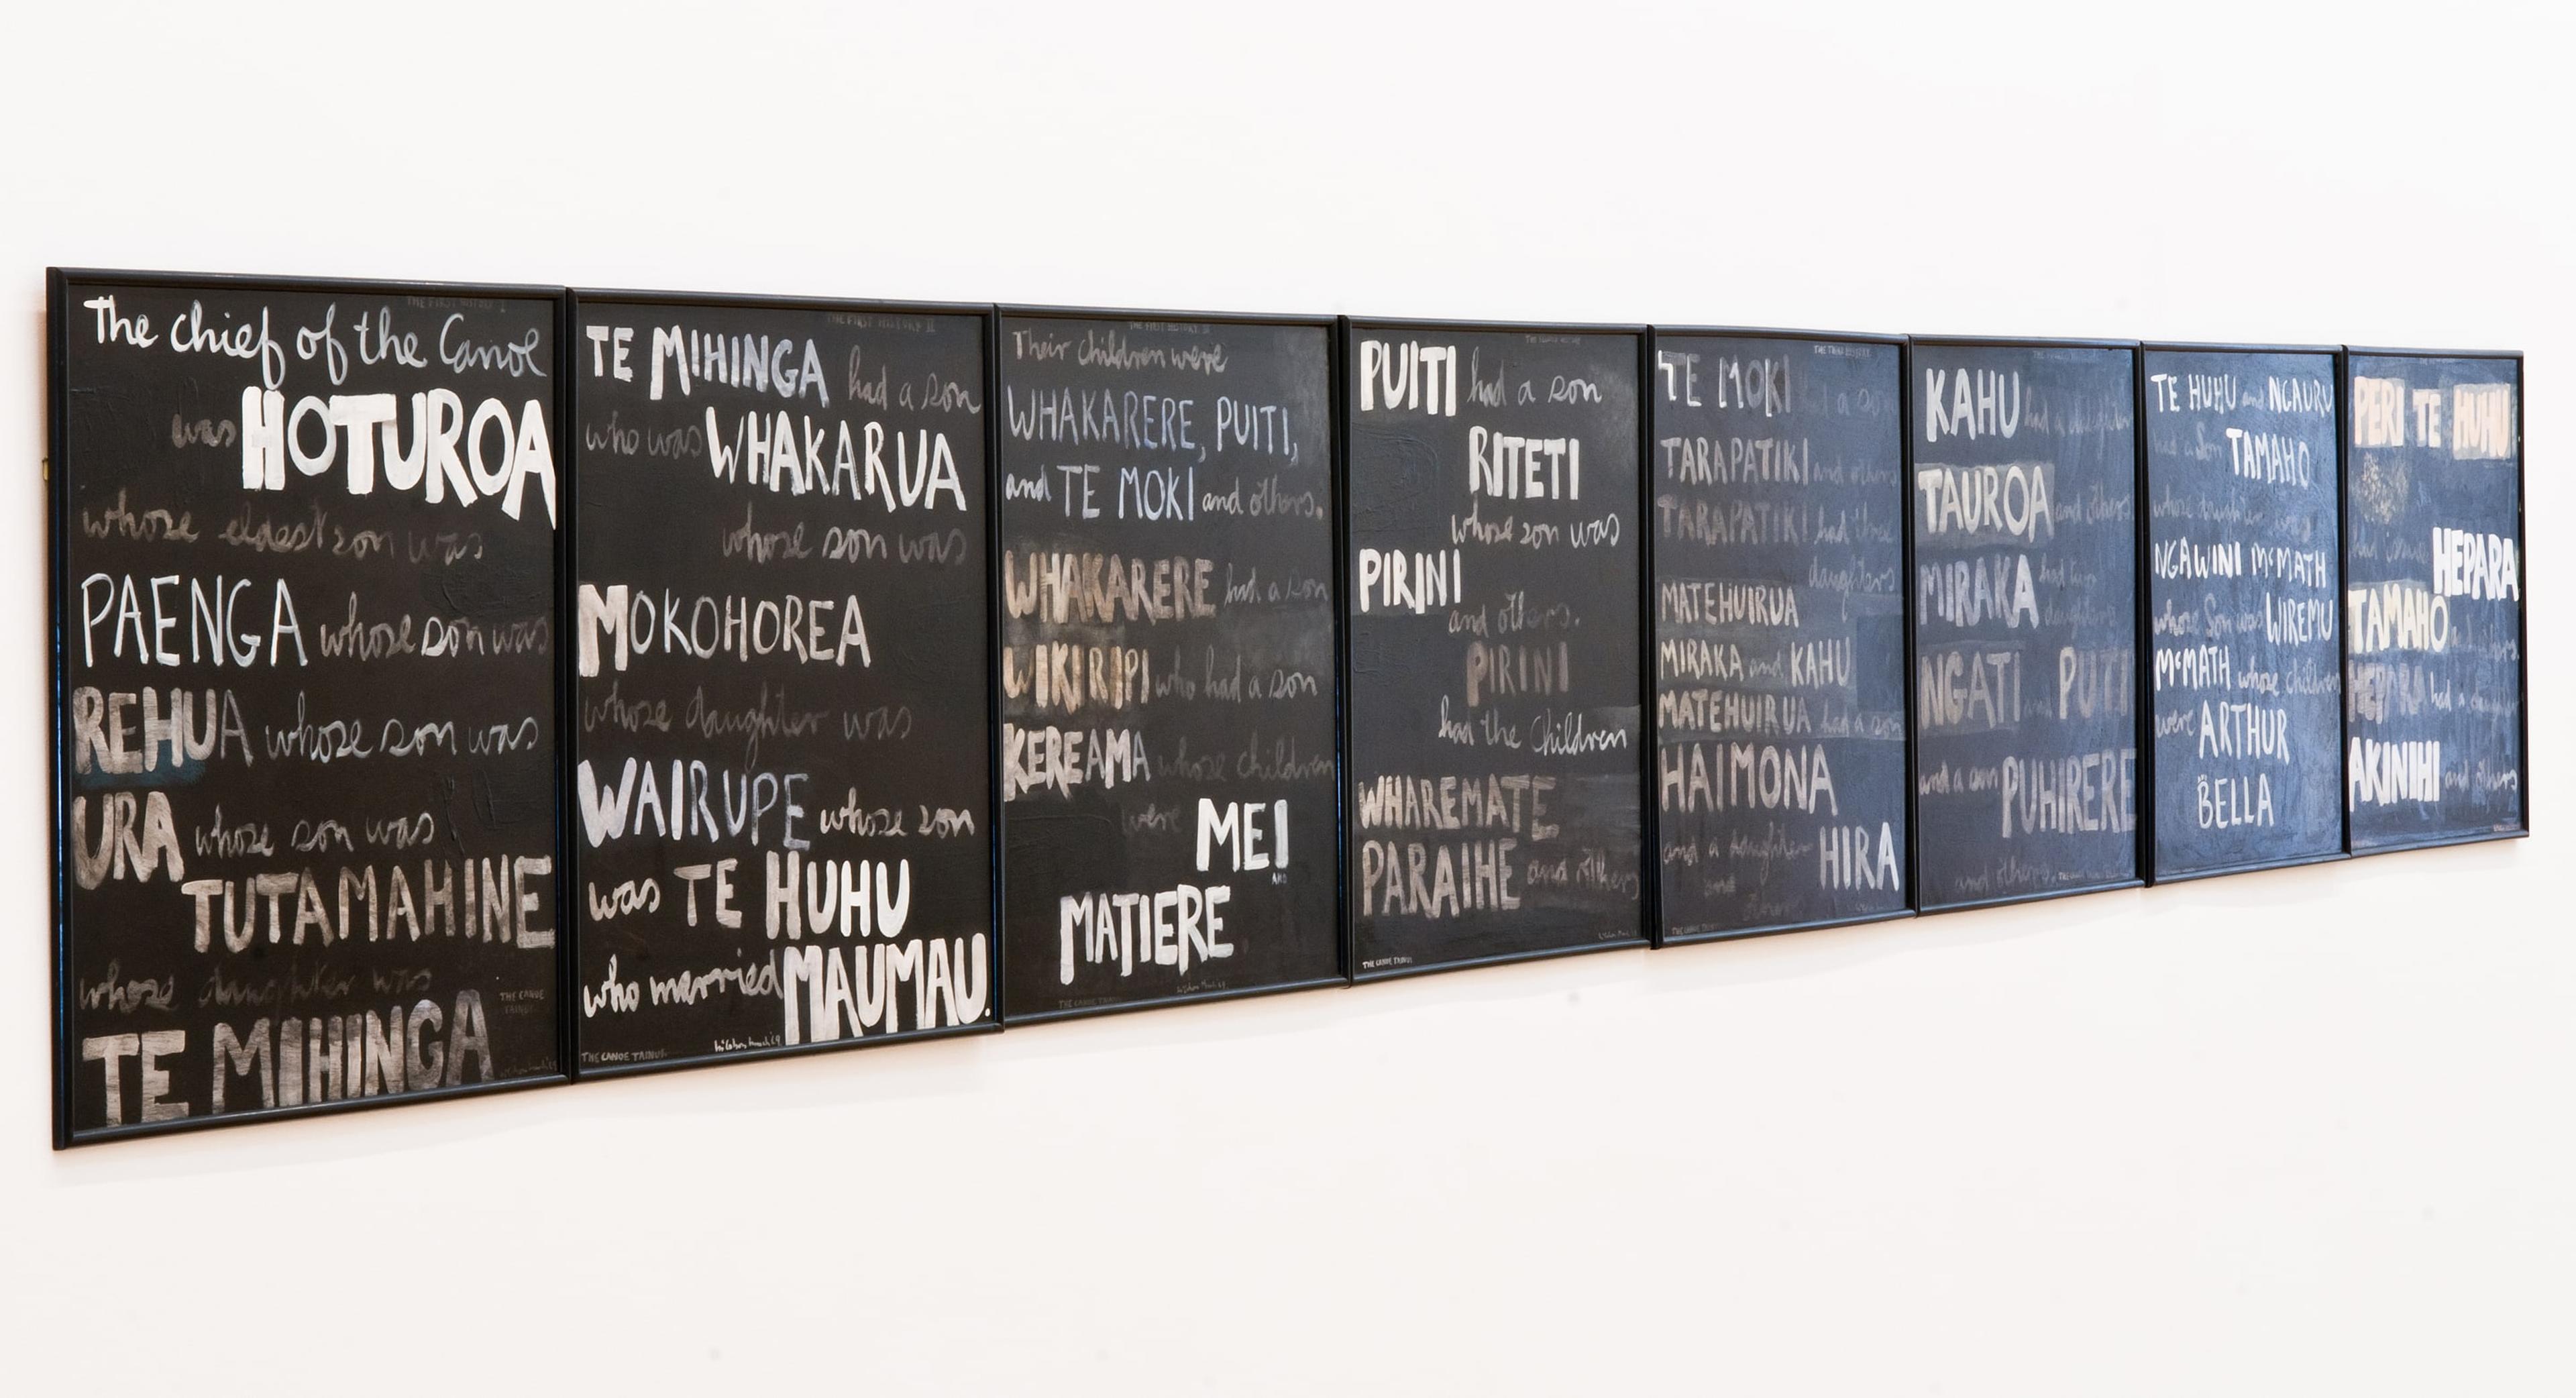 THE FIRST HISTORY I
The chief of the Canoe
was HOTUROA
whose eldest son was
PAENGA whose son was
REHUA whose son was
URA whose son was
TUTAMAHINE
whose daughter was
THE CANOE
TAINUI.
TE MIHINGA
THE FIRST HISTORY II
TE MIHINGA had a son
who was WHAKARUA
whose son was
MOKOHOREA
whose daughter was
WAIRUPE whose son
was TE HUHU
who married MAUMAU.
THE CANOE TAINUI.
THE FIRST HISTORY III
Their children were
WHAKARERE, PUITI,
and TE MOKI and others.
WHAKARERE had a son
WIKIRIPI who had a son
KEREAMA whose children
were MEI
AND
MATIERE
THE CANOE TAINUI
PUITI had a son
RITETI
whose son was
PIRINI
and others.
PIRINI
had the children
WHAREMATE
PARAIHE and others
THE CANOE TAINUI
TE MOKI had a son
TARAPATIKI and others
TARAPATIKI had three
daughters
MATEHUIRUA
MIRAKA and KAHU
MATEHUIRUA had a son
HAIMONA
and a daughter HIRA
and
THE CANOE TAINUI
KAHU had a daughter
TAUROA and others
MIRAKA had two
daughters
NGATI and PUTI
and a son PUHIRERE
and others.
TE HUHU and NGAURU
had a Son TAMAHO
whose daughter was
NGAWINI McMATH
whose Son was WIREMU
McMATH whose children
were ARTHUR
BELLA
PERI TE HUHU
had issue HEPARA
TAMAHO and others.
HEPARA had a daughter
AKINIHI and others